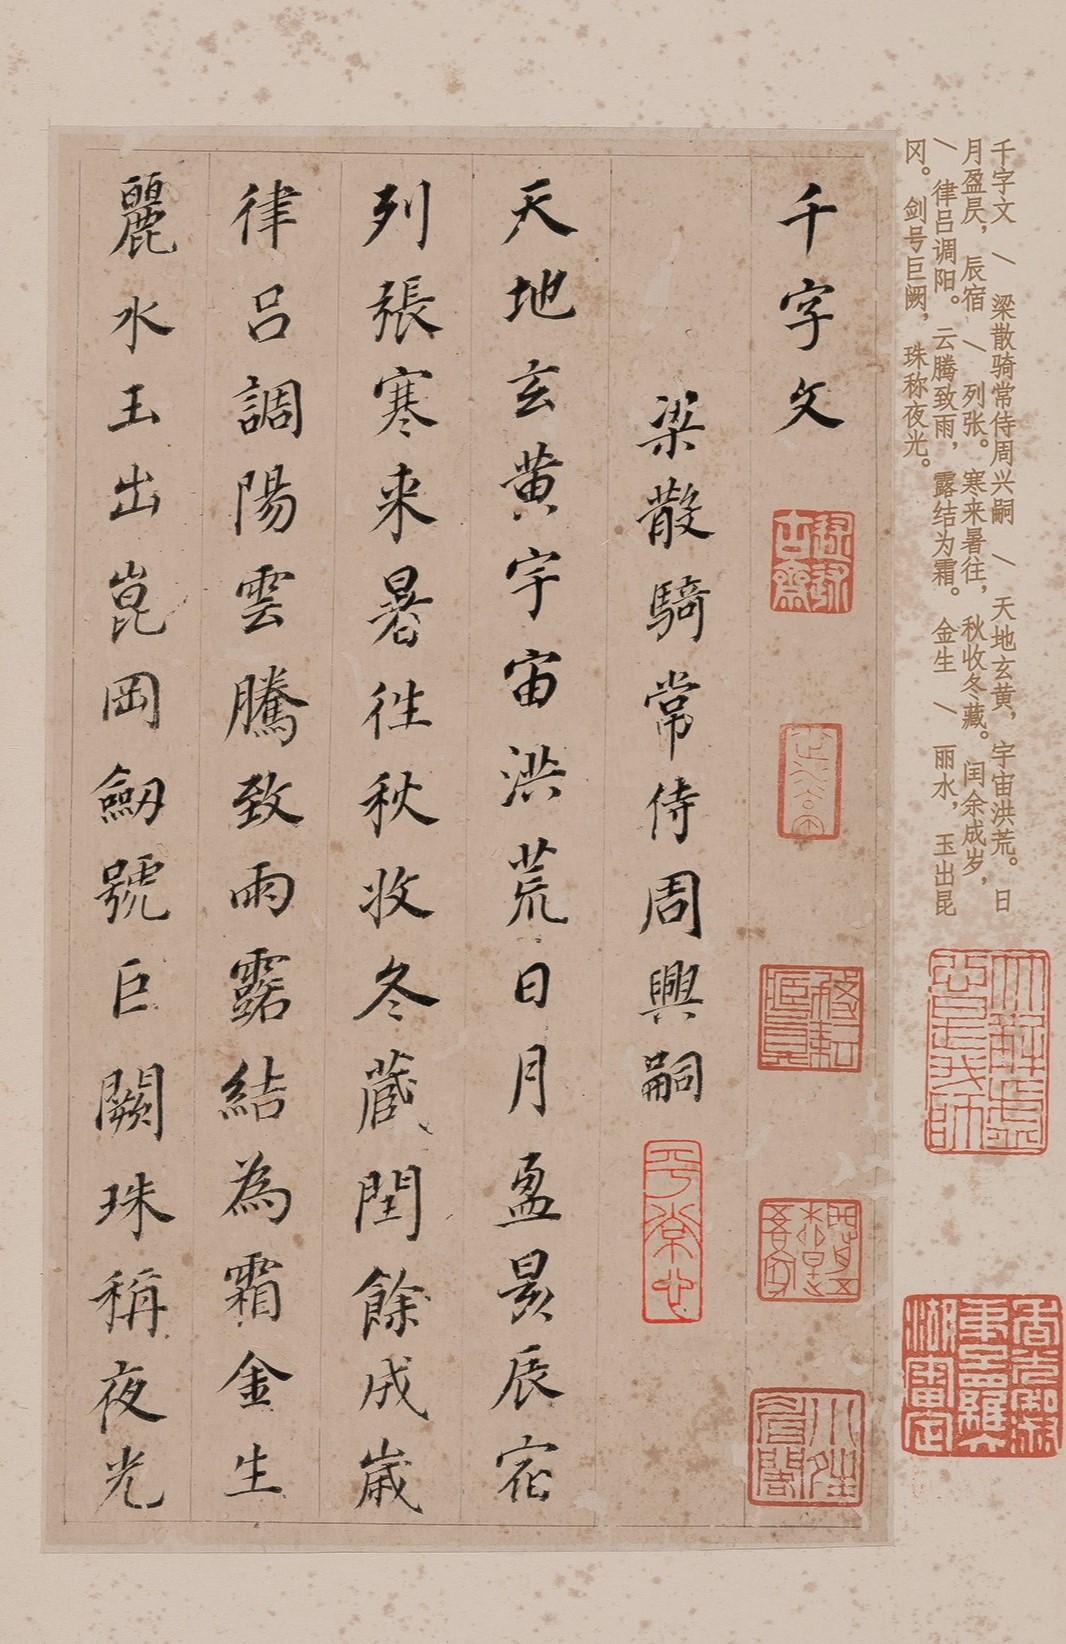 千字文
梁散騎常侍周興嗣
天地玄黄宇宙洪荒日月盈昃辰宿
列張寒来暑往秋收冬藏閏餘成歲
律呂調陽雲騰致雨露結為霜金生
麗水玉出崑岡劒號巨闕珠稱夜光
千字文 \ 梁散骑常侍周兴嗣 \ 天地玄黄，宇宙洪荒。日
月盈昃，辰宿 \ 列张。寒来暑往，秋收冬藏。闰余成岁，
\ 律吕调阳。云腾致雨，露结为霜。金生 \ 丽水，玉出昆
冈。剑号巨阙，珠称夜光。